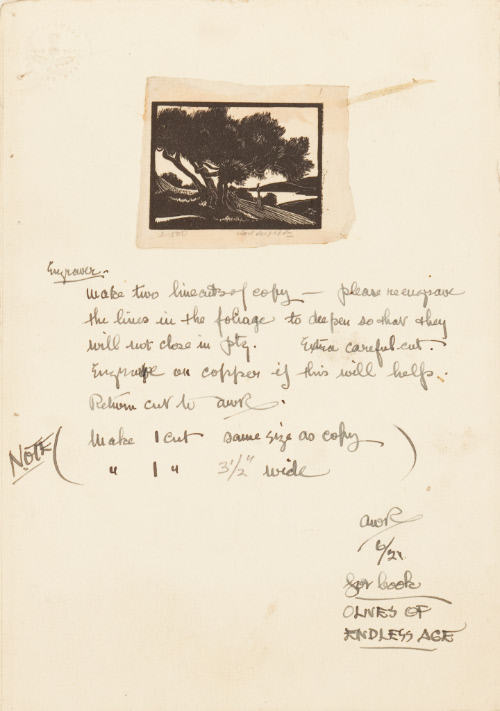 Engraver.
make two linecuts of copy — please reengrave
the lines in the foliage to deepen so that they
will not close in ptg. Extra careful cut.
Engrave on copper if this will help.
Return cut to AWR.
NOTE ( Make 1 cut same size as copy )
" 1 " 3½" wide
AWR
6/21
for book
OLIVES OF
ENDLESS AGE